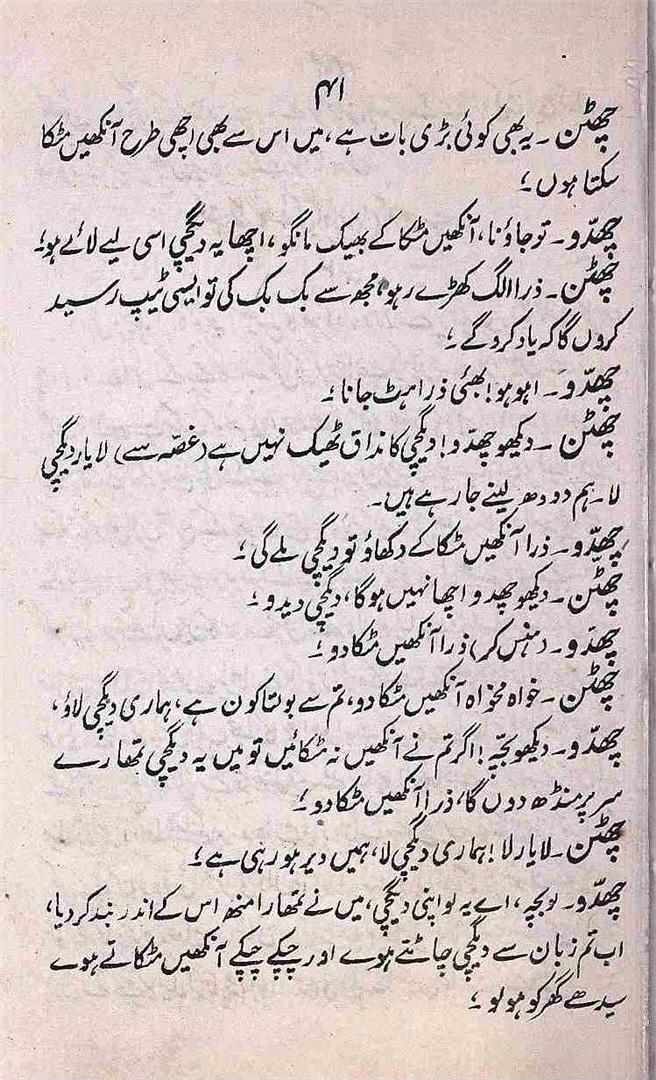 ۴۱
چھٹن۔ یہ بھی کوئی بڑی بات ہے، میں اس سے بھی اچھی طرح آنکھیں مٹکا
سکتا ہوں؛
چھدّو۔ تو جاؤ نا، آنکھیں مٹکا کے بھیک مانگو، اچھا یہ دیگچی اسی لیے لائے ہو؛
چھٹن۔ ذرا الگ کھڑے رہو، مجھ سے بک بک کی تو ایسی ٹیپ رسید
کروں گا کہ یاد کرو گے؛
چھدّو۔ اہو ہو! بھئی ذرا ہٹ جانا؛
چھٹن۔ دیکھو چھدّو! دیگچی کا مذاق ٹھیک نہیں ہے (غصّہ سے) لا یار دیگچی
لا۔ ہم دودھ لینے جا رہے ہیں۔
چھدّو۔ ذرا آنکھیں مٹکا کے دکھاؤ تو دیگچی ملے گی؛
چھٹن۔ دیکھو چھدو اچھا نہیں ہوگا، دیگچی دیدو؛
چھدّو۔ (ہنس کر) ذرا آنکھیں مٹکا دو؛
چھٹن۔ خواہ مخواہ آنکھیں مٹکا دو، تم سے بولتا کون ہے، ہماری دیگچی لاؤ،
چھدّو۔ دیکھو بچہ! اگر تم نے آنکھیں نہ مٹکائیں تو میں یہ دیگچی تمھارے
سر پر منڈھ دوں گا، ذرا آنکھیں مٹکا دو؛
چھٹن۔ لا یار لا! ہماری دیگچی لا، ہمیں دیر ہو رہی ہے؛
چھدّو۔ لو بچہ، اے یہ لو اپنی دیگچی، میں نے تمھارا منھ اس کے اندر بند کر دیا،
اب تم زبان سے دیگچی چاٹتے ہوے اور چپکے چپکے آنکھیں مٹکاتے ہوے
سیدھے گھر کو ہو لو؛